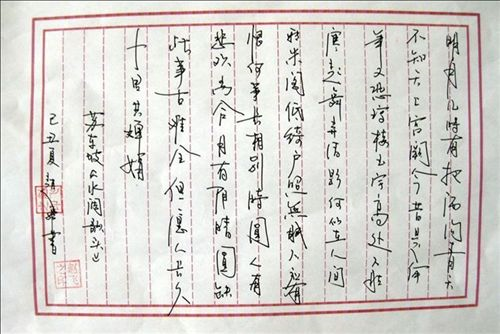 明月几时有把酒问青天
不知天上宫阙今昔是何
年又恐琼楼玉宇高处不胜
寒起舞弄清影何似在人间
转朱阁低绮户照无眠不应有
恨何事长相别时圆人有
悲欢离合月有阴晴圆缺
此事古难全但愿人长久
千里共婵娟
苏东坡《水调歌头》
己丑夏 书